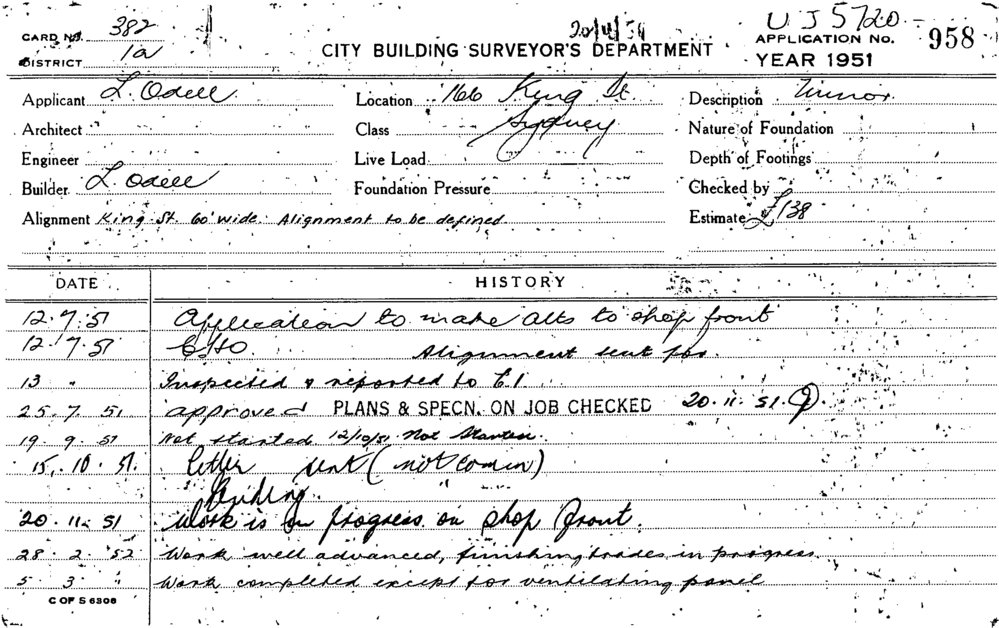 CARD No. 382
DISTRICT 1a
20/4/54
CITY BUILDING SURVEYOR'S DEPARTMENT
U J 5720
APPLICATION No. 958
YEAR 1951
Applicant L. Odell
Location 166 King St
Description Minor
Architect
Class Sydney
Nature of Foundation
Engineer
Live Load
Depth of Footings
Builder L. Odell
Foundation Pressure
Checked by
Alignment King St. 60' wide. Alignment to be defined
Estimate £138
DATE HISTORY
12.7.51 Application to make alts to shop front
12.7.51 CHO. Alignment sent for.
13 " Inspected & reported to C.I.
25.7.51 approved PLANS & SPECN. ON JOB CHECKED 20.11.51
19.9.51 Not started 12/10/51 Not Started.
15.10.51. letter sent (not comm)
Building.
20.11.51 Work is in progress on shop front.
28.2.52 Work well advanced, finishing trades in progress
5 3 " Work completed except for ventilating panel
C OF S 6308